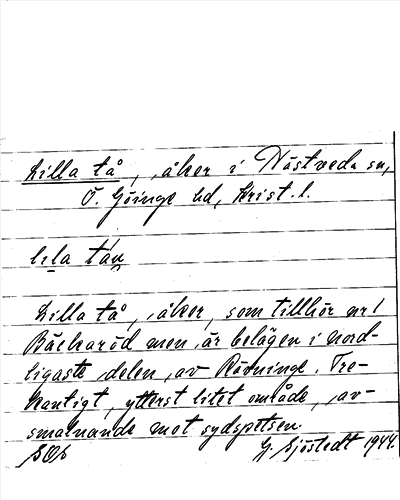 Lilla tå, åker i Nästveda sn,
Ö. Göinge hd, Krist. l.
lila tån
Lilla tå, åker, som tillhör nr 1
Bäckaröd men är belägen i nord-
ligaste delen av Rövninge. Tre-
kantigt, ytterst litet område, av-
smalnande mot sydspetsen.
G. Sjöstedt 1944.